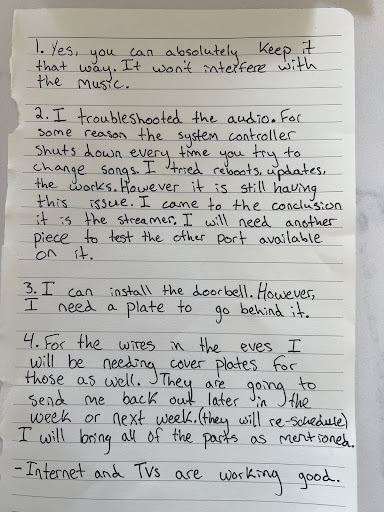 1. Yes, you can absolutely keep it
that way. It won't interfere with
the music.
2. I troubleshooted the audio. For
some reason the system controller
shuts down every time you try to
change songs. I tried reboots, updates,
the works. However it is still having
this issue. I came to the conclusion
it is the streamer. I will need another
piece to test the other port available
on it.
3. I can install the doorbell. However,
I need a plate to go behind it.
4. For the wires in the eves I
will be needing cover plates for
those as well. They are going to
send me back out later in the
week or next week. (they will re-schedule)
I will bring all of the parts as mentioned.
- Internet and TVs are working good.